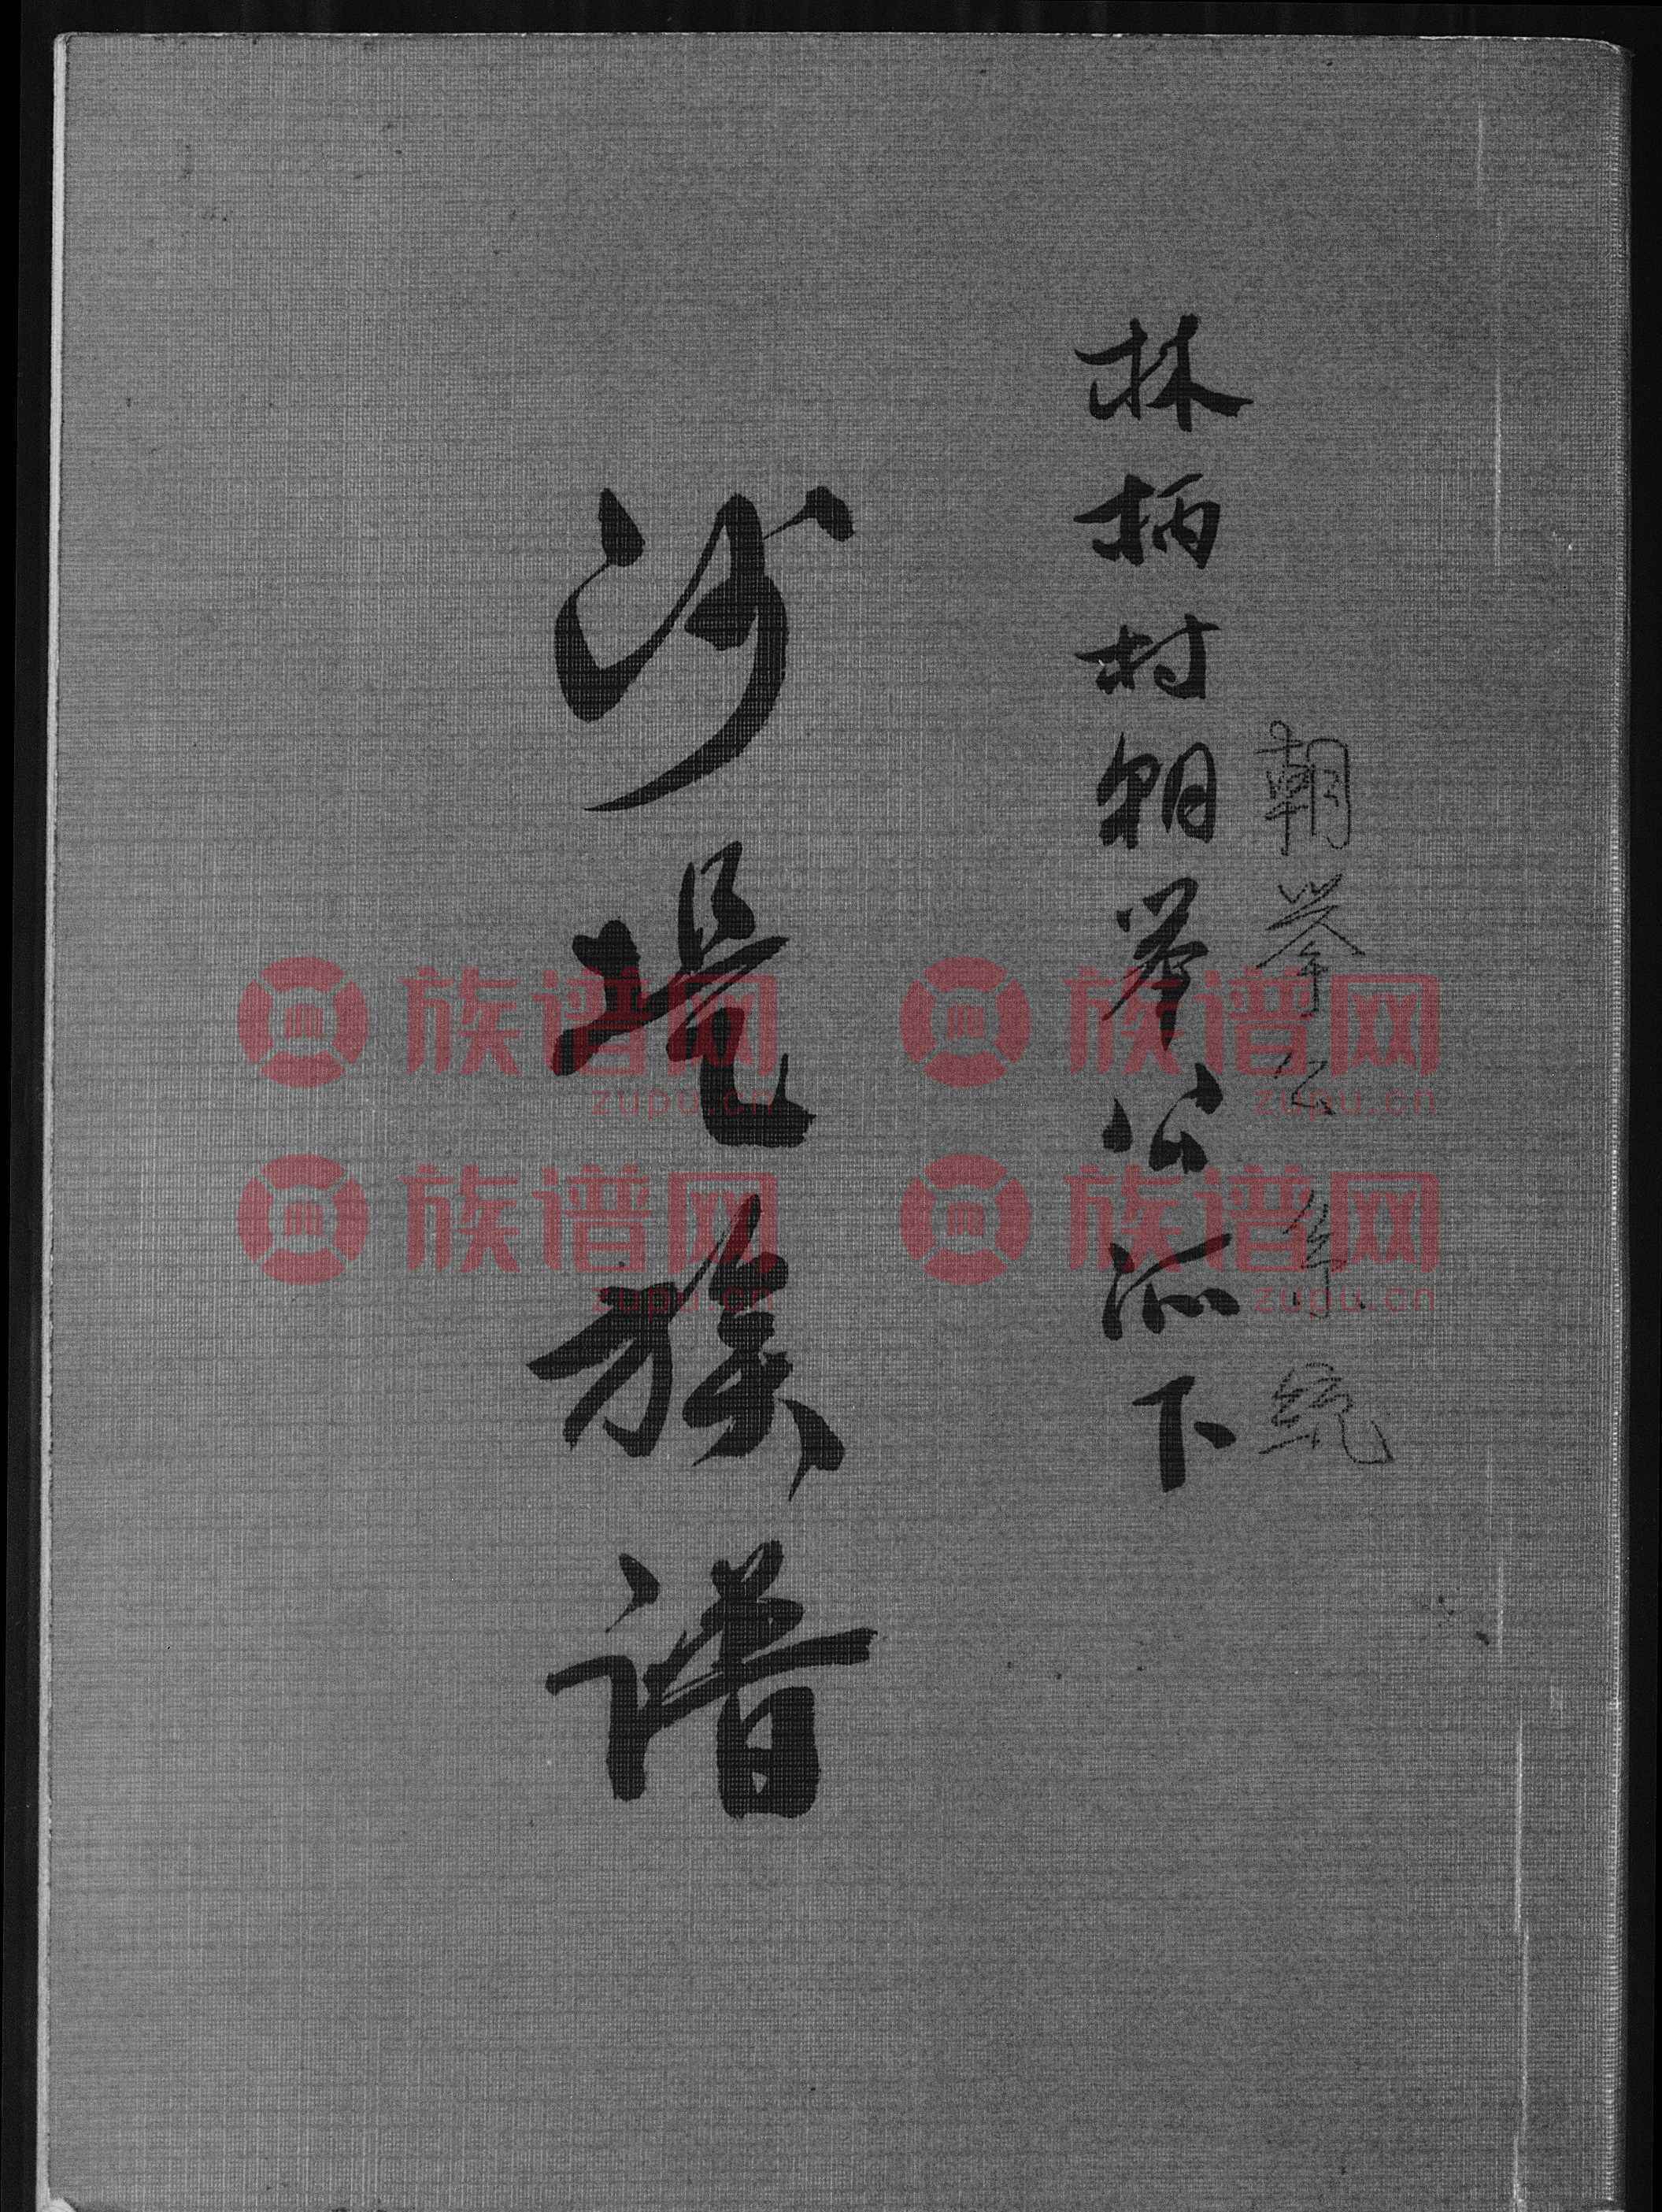 朝举公年统
林柄村朝举公派下
沙堤族谱
族谱网 族谱网
zupu.cn zupu.cn
族谱网 族谱网
zupu.cn zupu.cn